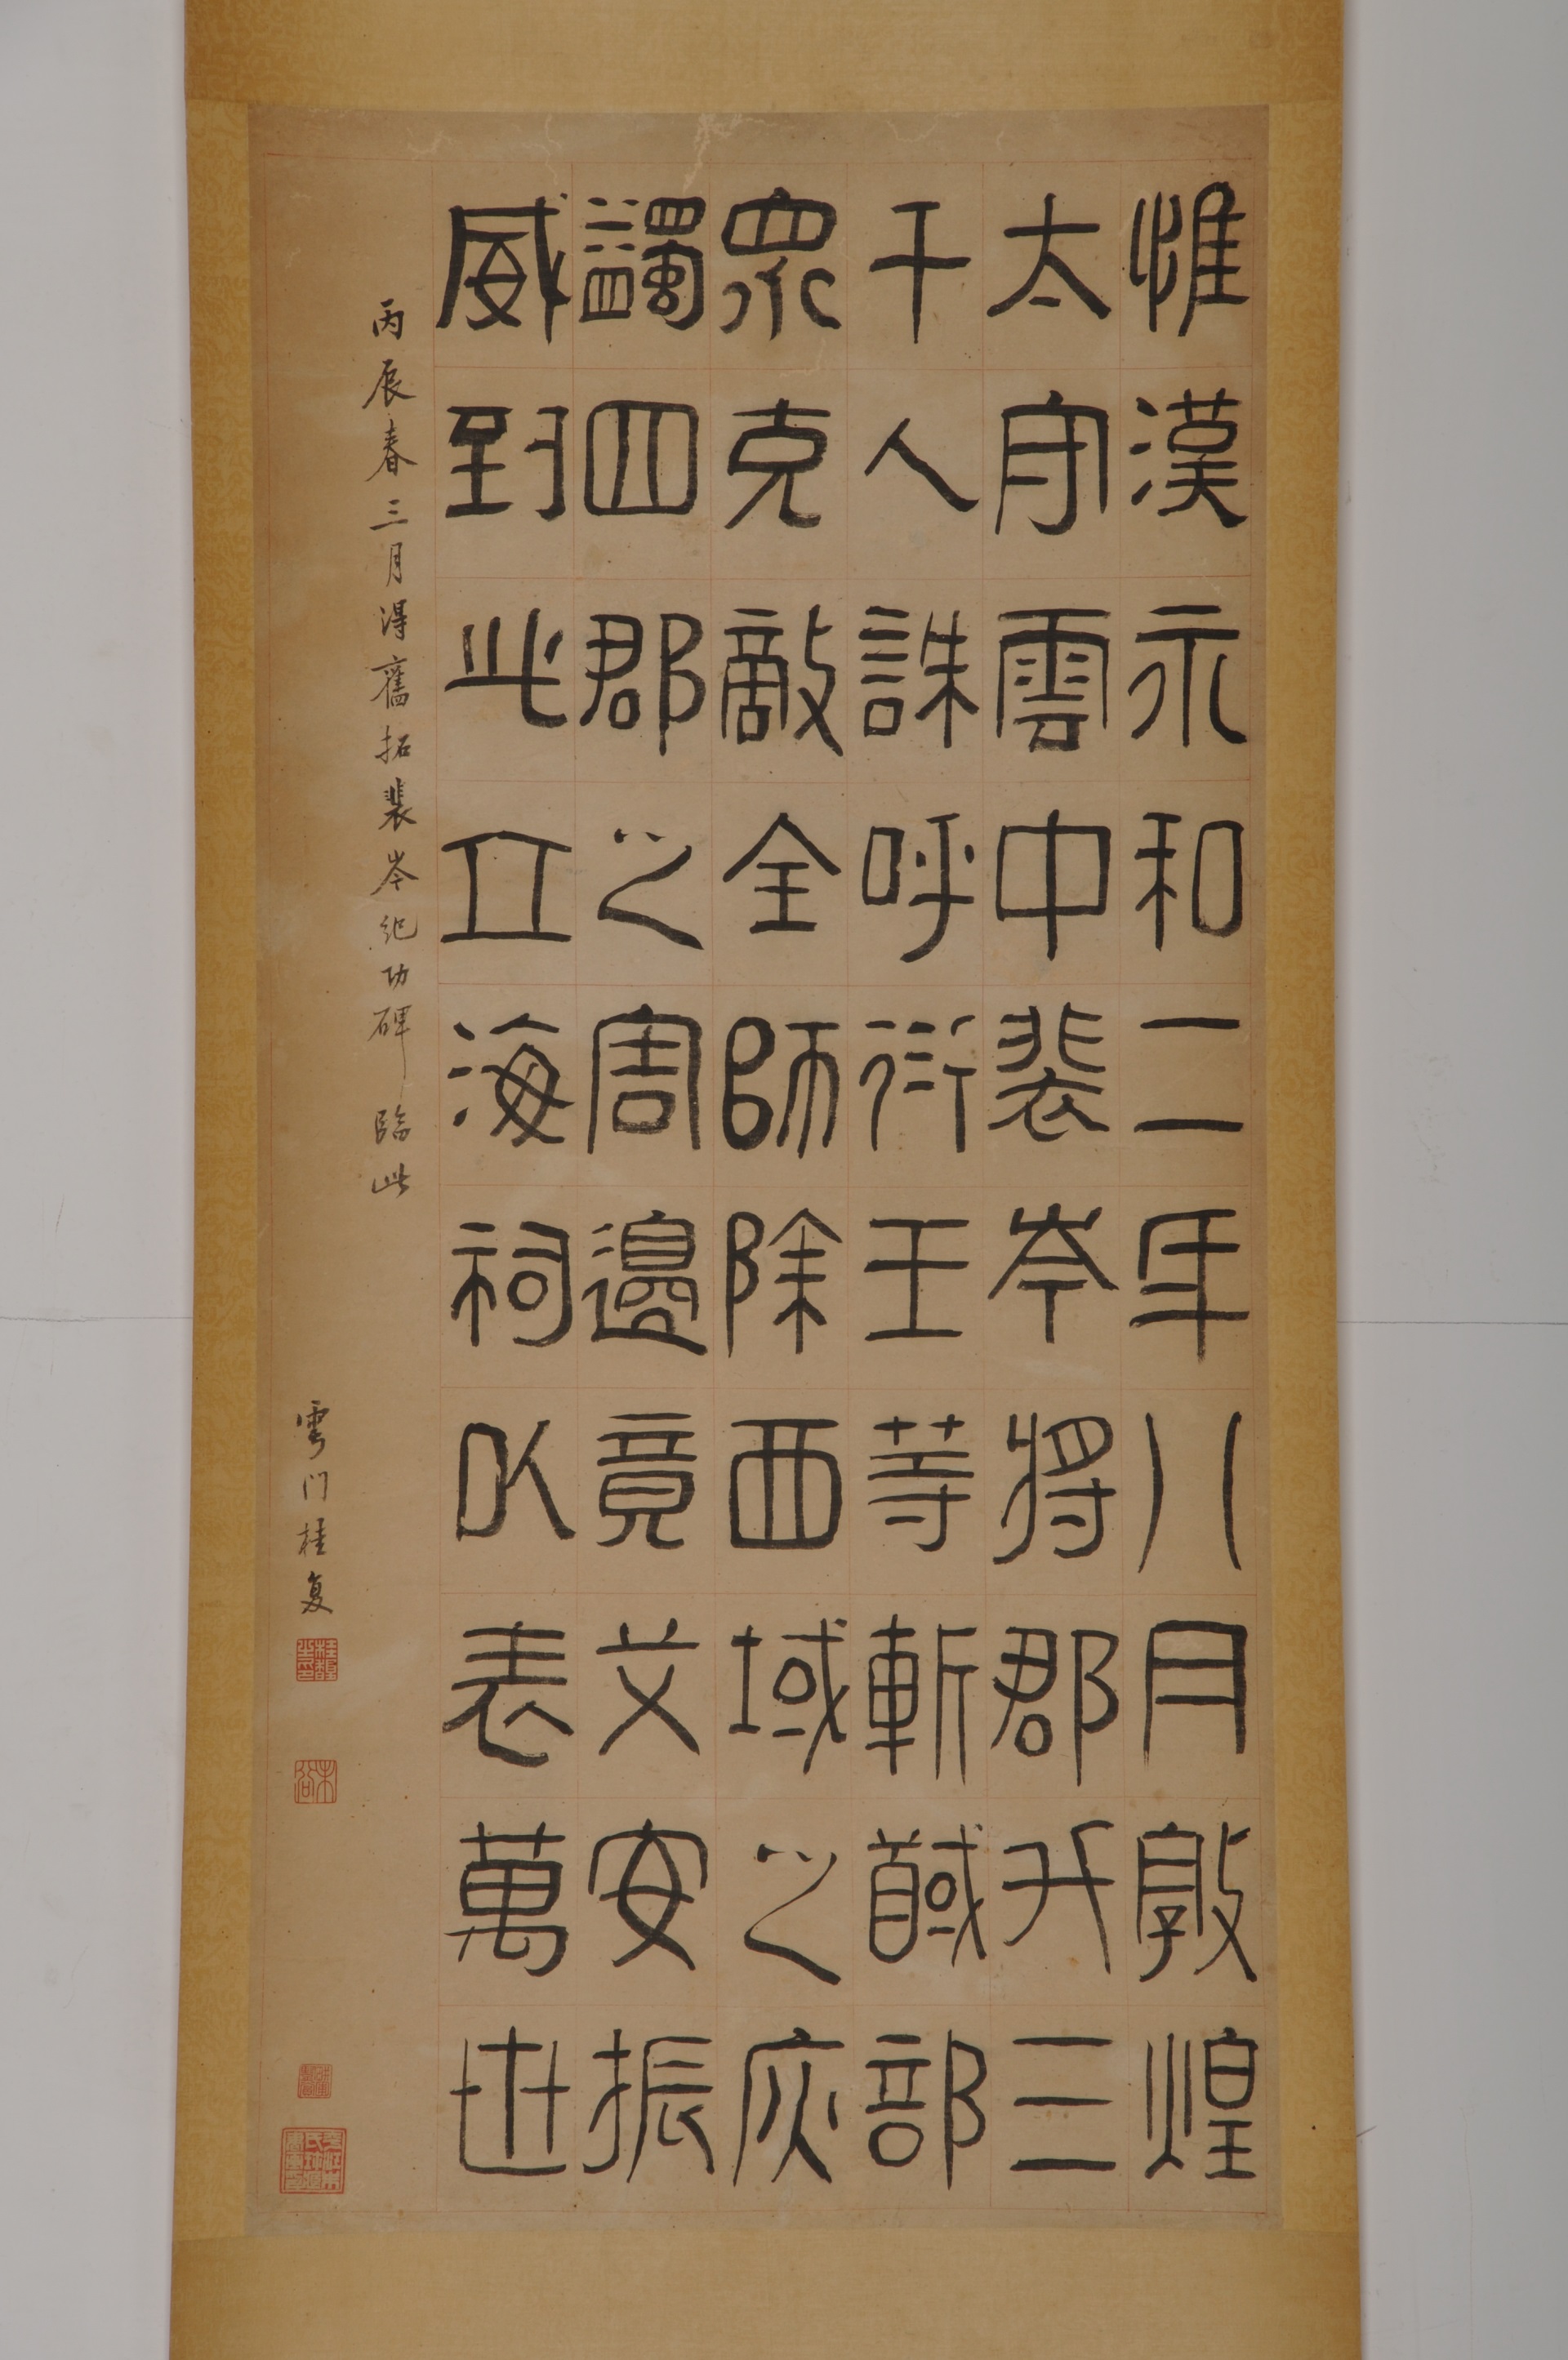 惟漢永和二年八月敦煌
太守雲中裴岑將郡兵三
千人誅呼衍王等斬馘部
眾克敵全師除西域之疢
蠲四郡之害邊竟艾安振
威到此立海祠以表萬世
丙辰春三月得舊拓裴岑紀功碑 臨此
雩門桂复